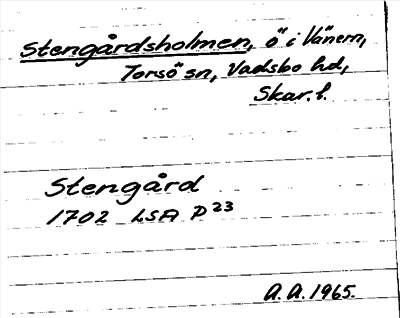 Stengårdsholmen, ö i Vänern,
Torsö sn, Vadsbo hd,
Skar. l.
Stengård
1702 LSA P23
A.A. 1965.